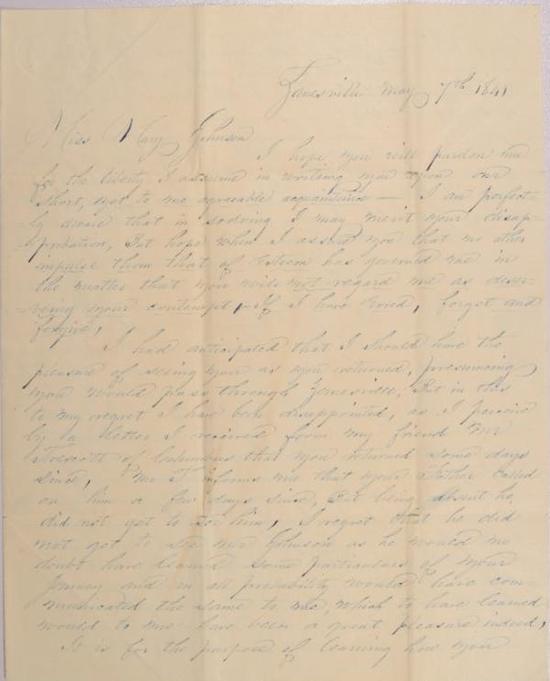 Zanesville May 7th 1841
Miss Mary Johnson
I hope you will pardon me
for the liberty I assume in writing you upon our
short, yet to me agreeable acquaintance — I am perfect-
ly aware that in so doing I may merit your disap-
probation, But hope when I assure you that no other
impulse than that of Esteem has governed me in
the matter that you will not regard me as deser-
ving your contempt, If I have erred, forget and
forgive,
I had anticipated that I should have the
pleasure of seeing you as you returned, presuming
you would pass through Zanesville, But in this
to my regret I have been disappointed, as I perceive
by a Letter I received from my friend Mr
of Columbus that you returned some days
since, Mr T informs me that your Father called
on him a few days since, But being absent he
did not get to see him, I regret that he did
not get to see Mr Johnson as he would no
doubt have learned some particulars of your
Journey and in all probability would have com-
municated the same to me, which to have learned
would to me have been a great pleasure indeed,
It is for the purpose of learning how you